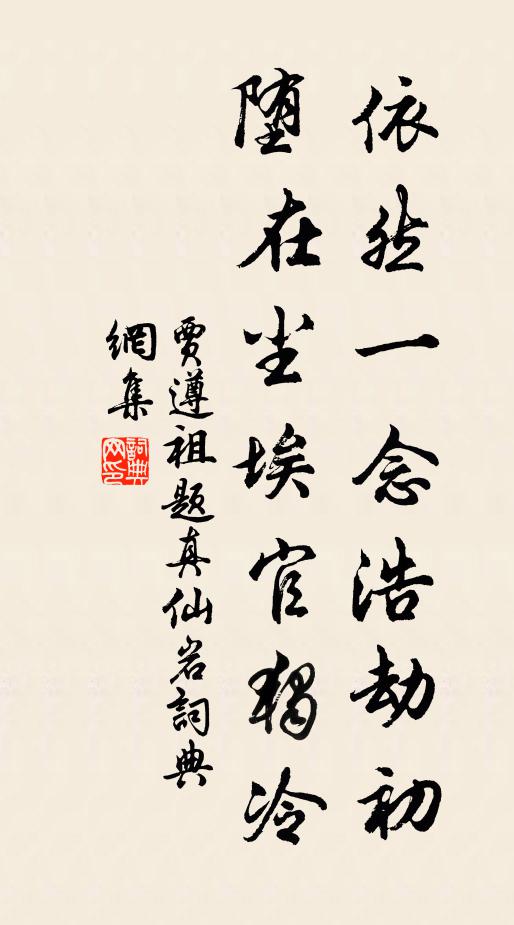 依然一念浩劫初
堕在尘埃官独冷
贾遵祖题真仙岩詞典
網集
詞典
网